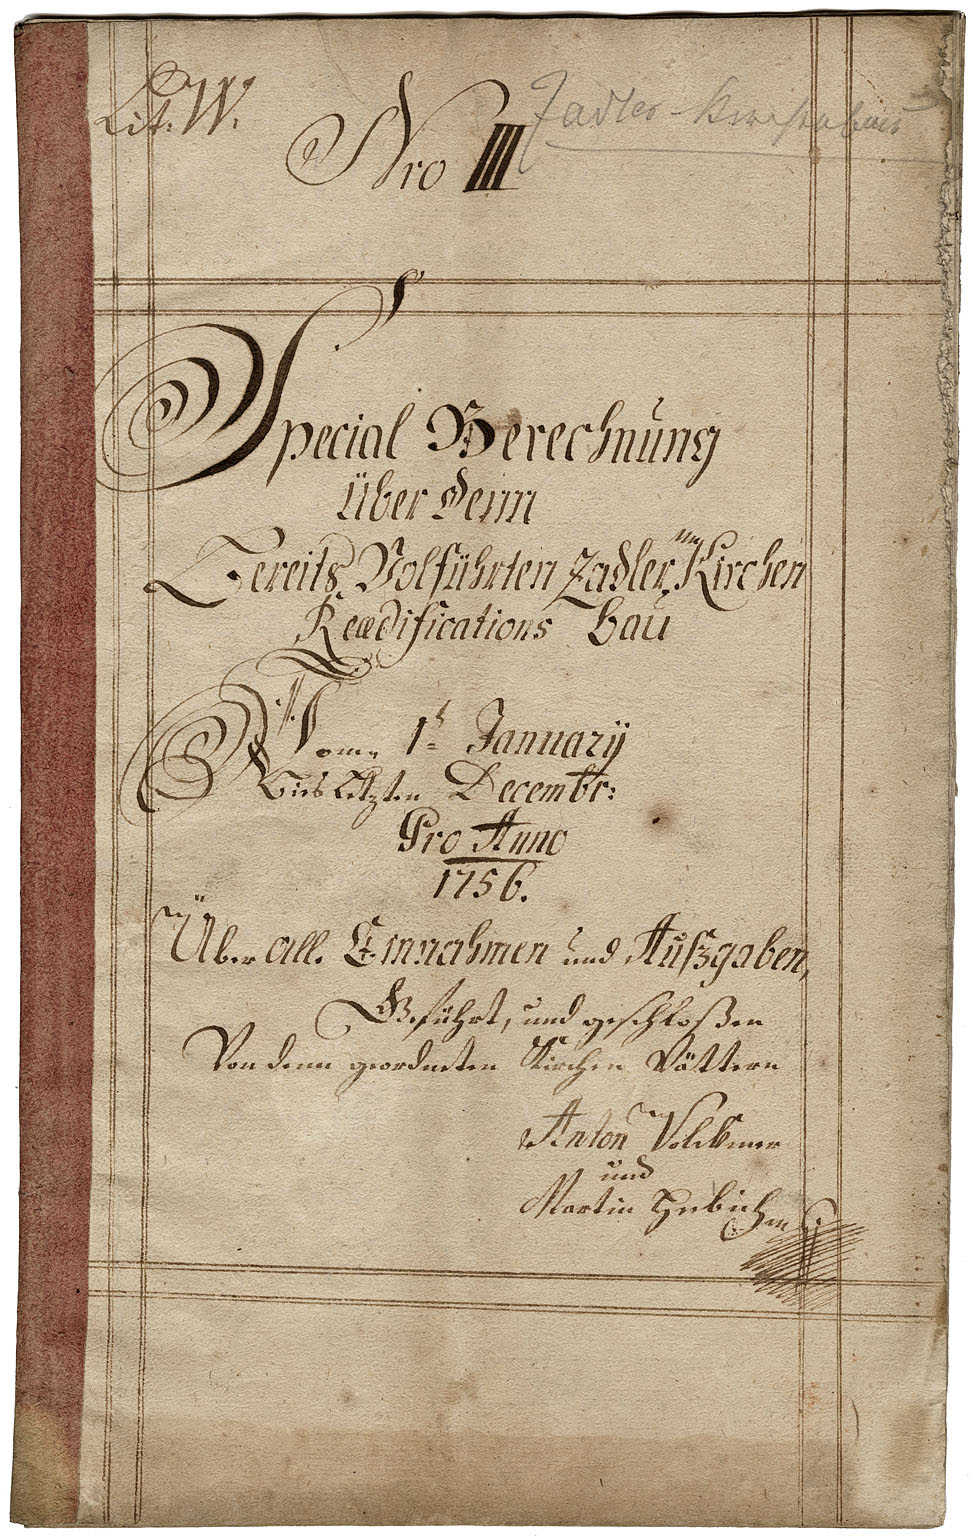 Lit: W.
Nro III
Zadler
Special Berechnung
Über denn
Bereits Volführten Zadler Kirchen
Reædifications Bau
Vom 1t January
Bies letzten Decembr:
Pro Anno
1756.
Über all. Einnahmen und Außgaben,
Geführt, und geschloßen
Von denn geordneten Kirchen Vättern
Anton Volckmer
und
Martin